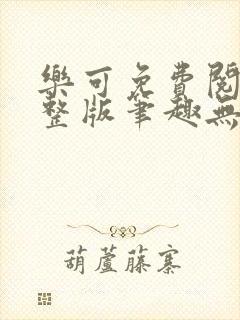 樂可免費閱
整版筆趣無
葫蘆藤寨